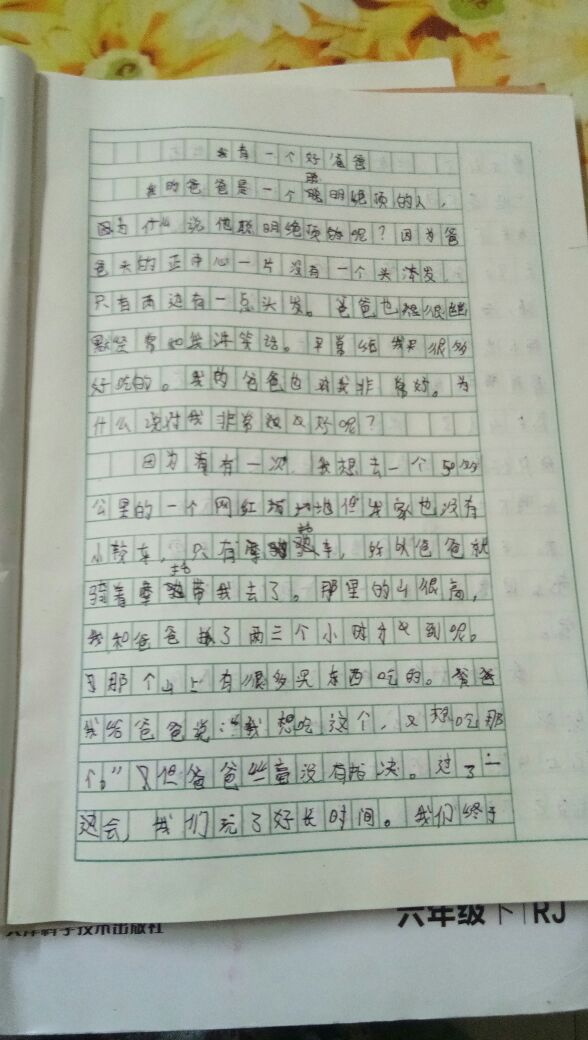 我有一个好爸爸
我的爸爸是一个聪明绝顶的人,
因为什么说他聪明绝顶的呢?因为爸
爸头的正中心一片没有一个头发,
只有两边有一点头发。爸爸也很幽
默坚常和我讲笑话。平常给我买很多
好吃的。我的爸爸也对我非常好。为
什么说对我非常好呢?
因为有一次,我想去一个50多
公里的一个网红地但我家也没有
小轿车,只有摩托车,所以爸爸就
骑着摩托带我去了。那里的山很高,
我和爸爸了两三个小时才到呢。
那个山上有很多东西吃的。爸爸
我给爸爸说:“我想吃这个,又想吃那
个。”但爸爸没有拒决。过了一
这会,我们玩了好长时间。我们终于
六年级 下 RJ
天津科学技术出版社